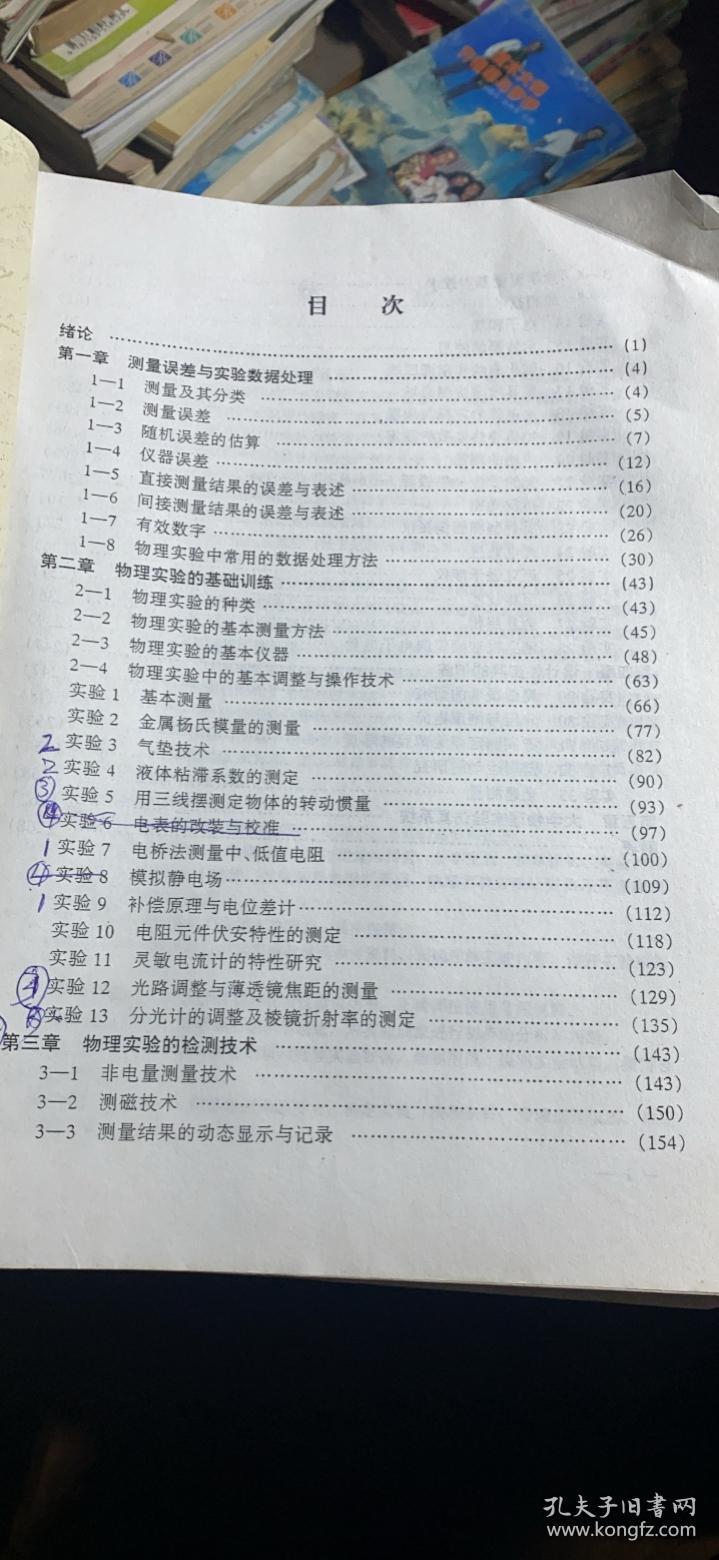 目 次
绪论 ………………………………………………… (1)
第一章 测量误差与实验数据处理 ………………………… (4)
1—1 测量及其分类 ………………………………… (4)
1—2 测量误差 ……………………………………… (5)
1—3 随机误差的估算 ……………………………… (7)
1—4 仪器误差 ……………………………………… (12)
1—5 直接测量结果的误差与表述 ………………… (16)
1—6 间接测量结果的误差与表述 ………………… (20)
1—7 有效数字 ……………………………………… (26)
1—8 物理实验中常用的数据处理方法 …………… (30)
第二章 物理实验的基础训练 ……………………………… (43)
2—1 物理实验的种类 ……………………………… (43)
2—2 物理实验的基本测量方法 …………………… (45)
2—3 物理实验的基本仪器 ………………………… (48)
2—4 物理实验中的基本调整与操作技术 ………… (63)
实验 1 基本测量 …………………………………… (66)
实验 2 金属杨氏模量的测量 ……………………… (77)
2 实验 3 气垫技术 …………………………………… (82)
2 实验 4 液体粘滞系数的测定 ……………………… (90)
③ 实验 5 用三线摆测定物体的转动惯量 …………… (93)
④ 实验 6 电表的改装与校准 ………………………… (97)
1 实验 7 电桥法测量中、低值电阻 ………………… (100)
④ 实验 8 模拟静电场 ………………………………… (109)
1 实验 9 补偿原理与电位差计 ……………………… (112)
实验 10 电阻元件伏安特性的测定 ………………… (118)
实验 11 灵敏电流计的特性研究 …………………… (123)
实验 12 光路调整与薄透镜焦距的测量 …………… (129)
实验 13 分光计的调整及棱镜折射率的测定 ……… (135)
第三章 物理实验的检测技术 ……………………………… (143)
3—1 非电量测量技术 ……………………………… (143)
3—2 测磁技术 ……………………………………… (150)
3—3 测量结果的动态显示与记录 ………………… (154)
孔夫子旧书网
www.kongfz.com